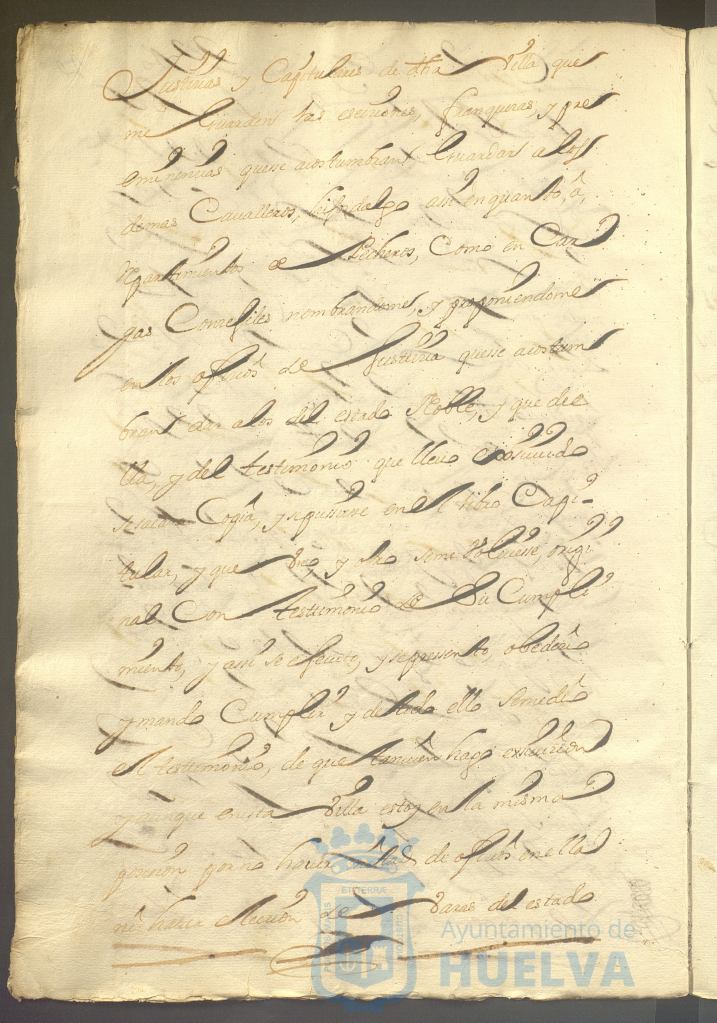 Justicias y Capitulares de dha Villa que
me Guarden las esenciones, franquezas, y pre
eminencias que se acostumbran Guardar a los
demas Cavalleros, hijosdalgo asi en quanto, â,
Repartimientos de Pecheros, Como en Car
gas Consejiles nombrandome, y proponiendome
en los oficios de Justicia que se acostum
bran dar a los del estado Noble, y que de
lla, y del testimonio que llevo
se saca Copia, y se pusiese en el libro Capi-
tular, y que Vno, y otro se me volviesse, origi
nal Con testimonio de Su Cumpli
miento, y assi se efecuto, y se presento, obedecio
y mando Cumplir y de todo ello se me dio
el testimonio, de que tanvien hago exsivicion
y aunque en esta Villa estoy en la misma
posecion por no haver de oficios en ella
ni hacer eleccion de Varas del estado
Ayuntamiento de
HUELVA